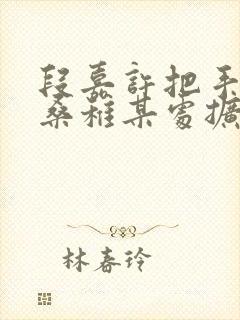 段嘉許把手
桑稚某處擴
林春玲